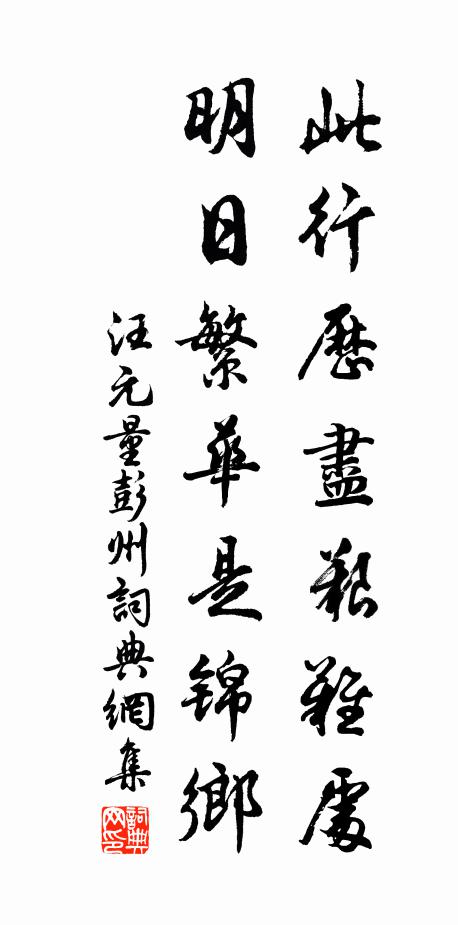 此行歷盡艱難處
明日繁華是錦鄉
汪元量彭州詞典網集
詞典網印